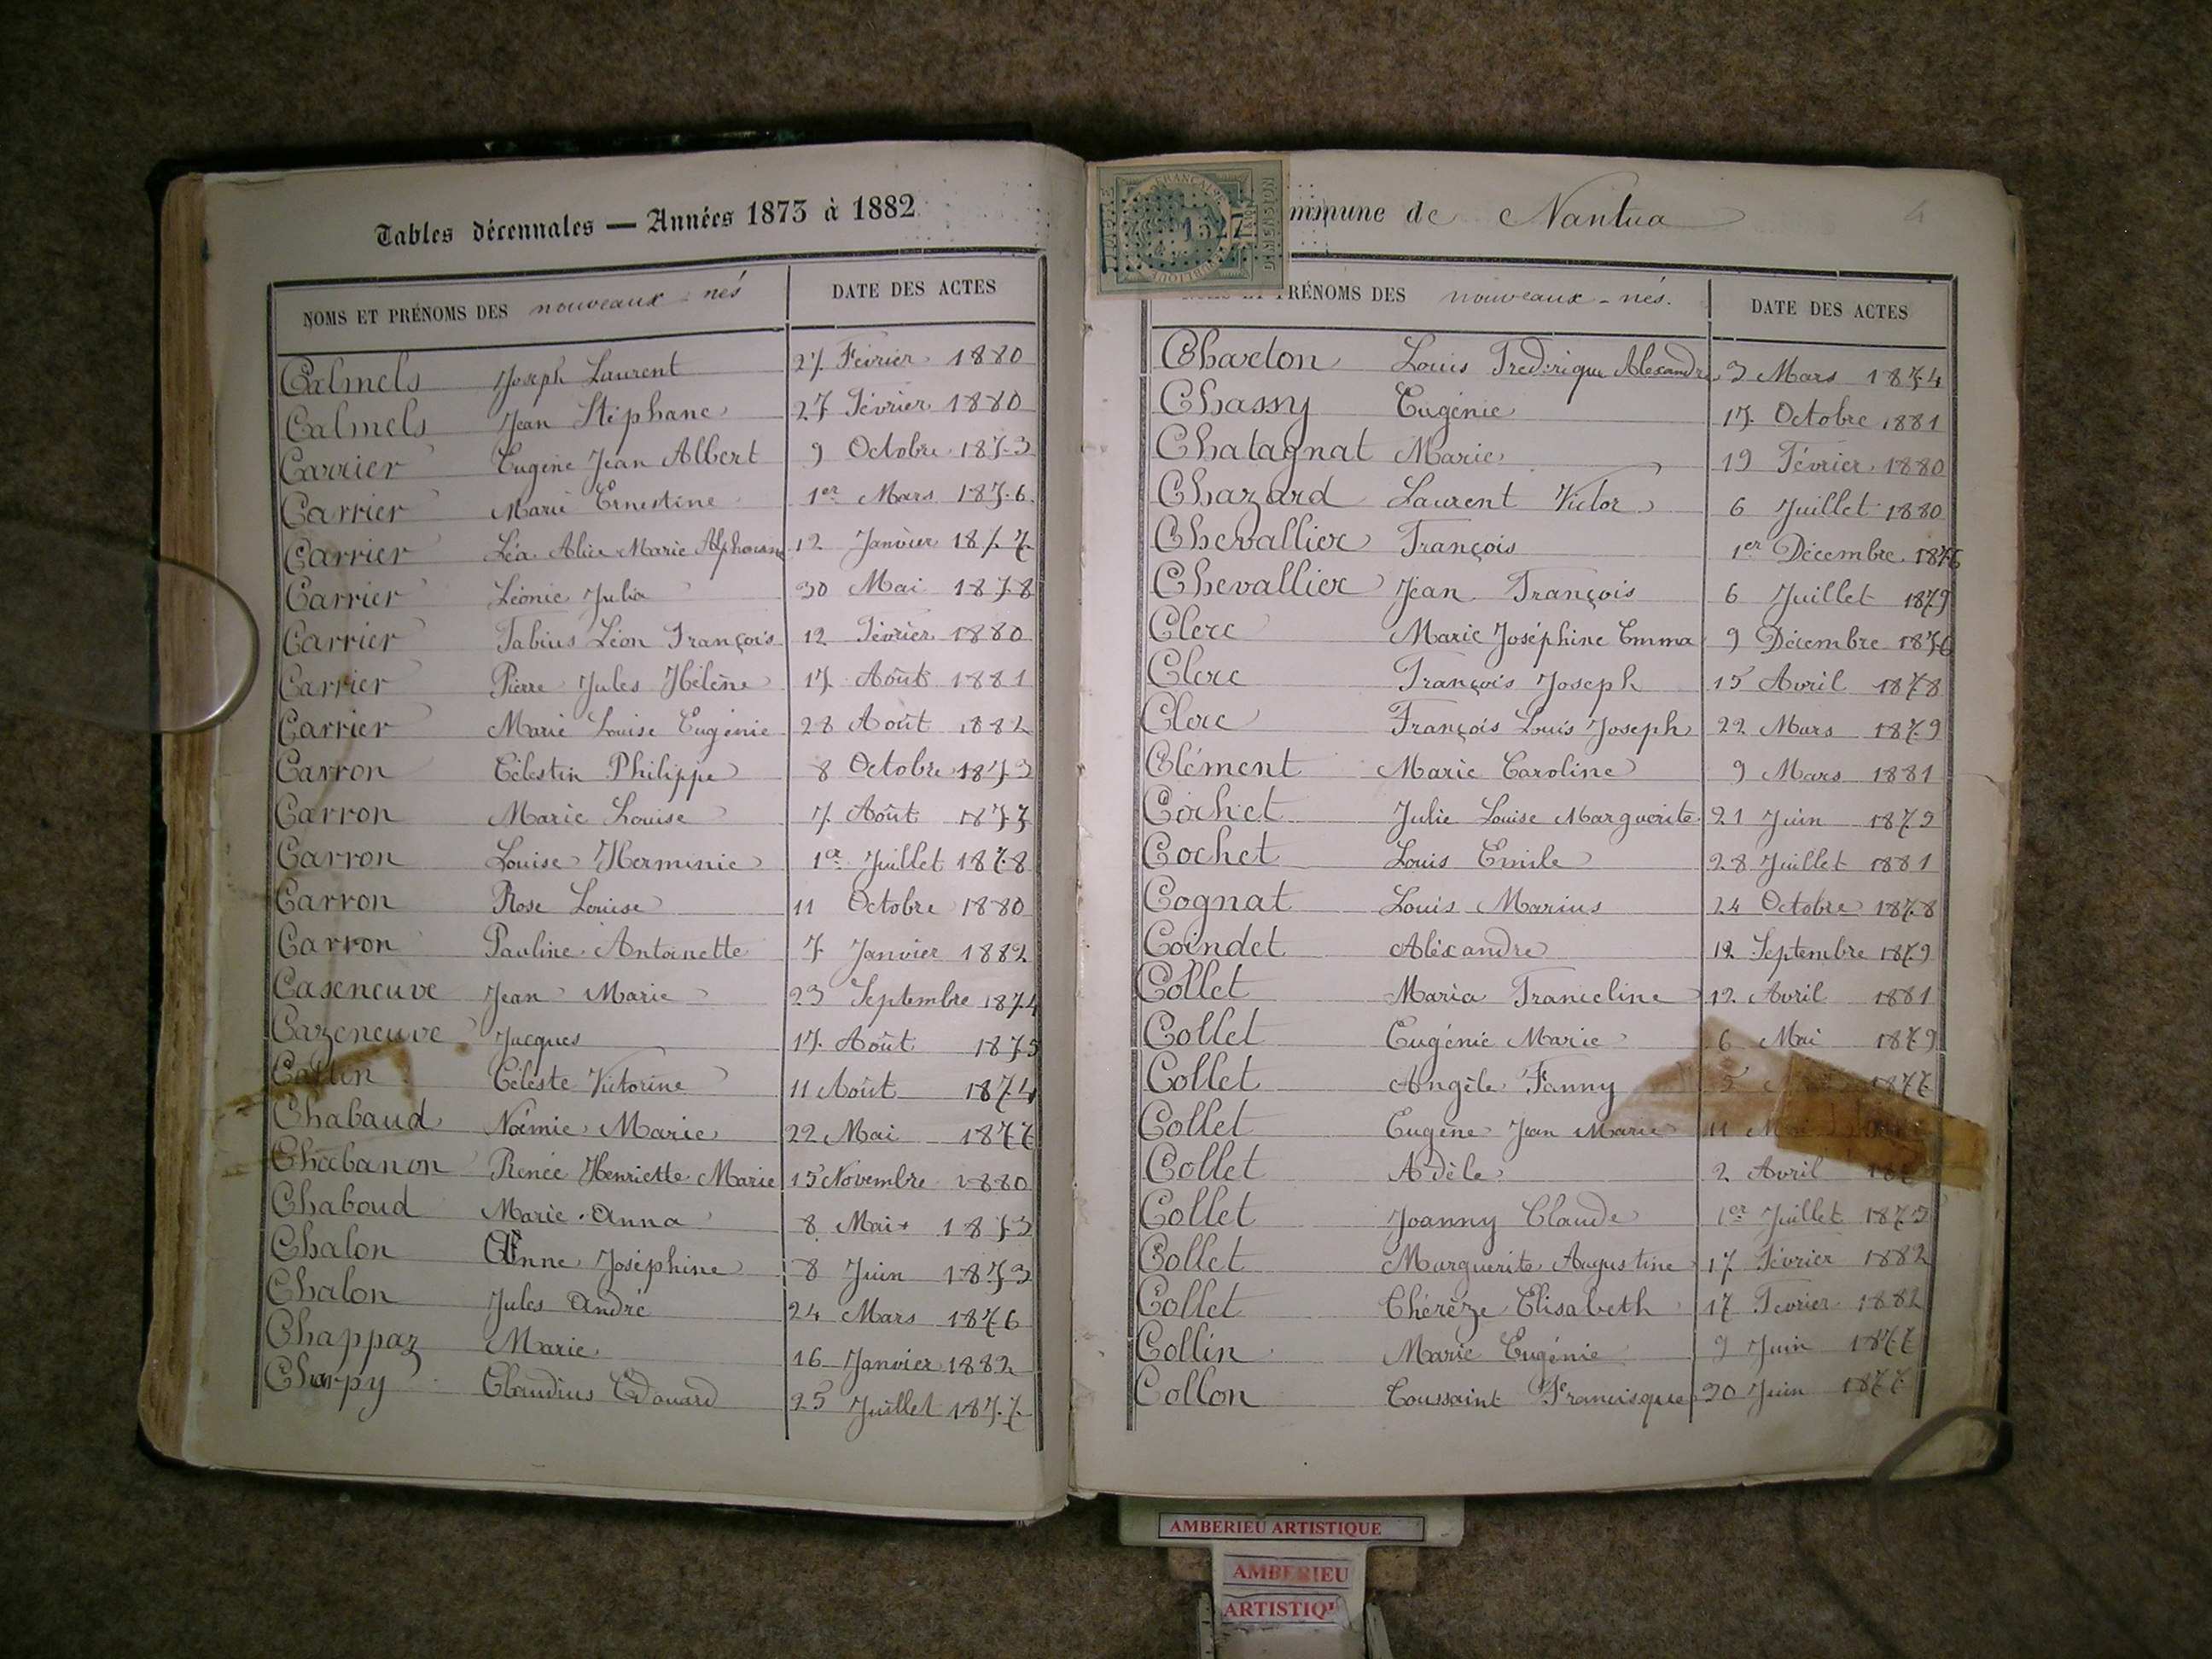 Tables décennales — Années 1873 à 1882
NOMS ET PRÉNOMS DES nouveaux-nés DATE DES ACTES
Calmels Joseph Laurent 27 Février 1880
Calmels Jean Stéphane 27 Février 1880
Carrier Eugène Jean Albert 9 Octobre 1873
Carrier Marie Ernestine 1er Mars 1876
Carrier Léa Alice Marie 12 Janvier 1877
Carrier Léonie Julia 30 Mai 1878
Carrier Fabius Léon François 12 Février 1880
Carrier Pierre Jules Hélène 17 Août 1881
Carrier Marie Louise Eugénie 28 Août 1882
Carron Célestin Philippe 8 Octobre 1873
Carron Marie Louise 7 Août 1877
Carron Louise Herminie 1er Juillet 1878
Carron Rose Louise 11 Octobre 1880
Carron Pauline Antoinette 7 Janvier 1882
Caseneuve Jean Marie 23 Septembre 1874
Cazeneuve Jacques 17 Août 1875
Céleste Victorine 11 Août 1874
Chabaud Noémie Marie 22 Mai 1877
Chabanon Renée Henriette Marie 15 Novembre 1880
Chaboud Marie Anna 8 Mai 1873
Chalon Anne Joséphine 8 Juin 1873
Chalon Jules André 24 Mars 1876
Chappaz Marie 16 Janvier 1882
Charpy Claudius Edouard 25 Juillet 1877
mmune de Nantua
RÉNOMS DES nouveaux-nés. DATE DES ACTES
Charlon Louis Frédérique Alexandre 3 Mars 1874
Chassy Eugénie 17 Octobre 1881
Chatagnat Marie 19 Février 1880
Chazard Laurent Victor 6 Juillet 1880
Chevallier François 1er Décembre 1876
Chevallier Jean François 6 Juillet 1879
Clerc Marie Joséphine Emma 9 Décembre 1876
Clerc François Joseph 15 Avril 1878
Clerc François Louis Joseph 22 Mars 1879
Clément Marie Caroline 9 Mars 1881
Cochet Julie Louise Marguerite 21 Juin 1879
Cochet Louis Emile 28 Juillet 1881
Cognat Louis Marius 24 Octobre 1878
Coindet Aléxandre 12 Septembre 1879
Collet Maria Franceline 12 Avril 1881
Collet Eugénie Marie 6 Mai 1879
Collet Angèle Fanny 1877
Collet Eugène Jean Marie 11
Collet Adèle 2 Avril
Collet Joanny Claude 1er Juillet 1873
Collet Marguerite Augustine 17 Février 1882
Collet Thérèze Elisabeth 17 Février 1882
Collin Marie Eugénie 9 Juin 1877
Collon Toussaint Francisque 20 Juin 1877
AMBERIEU ARTISTIQUE
AMBERIEU
ARTISTIQU